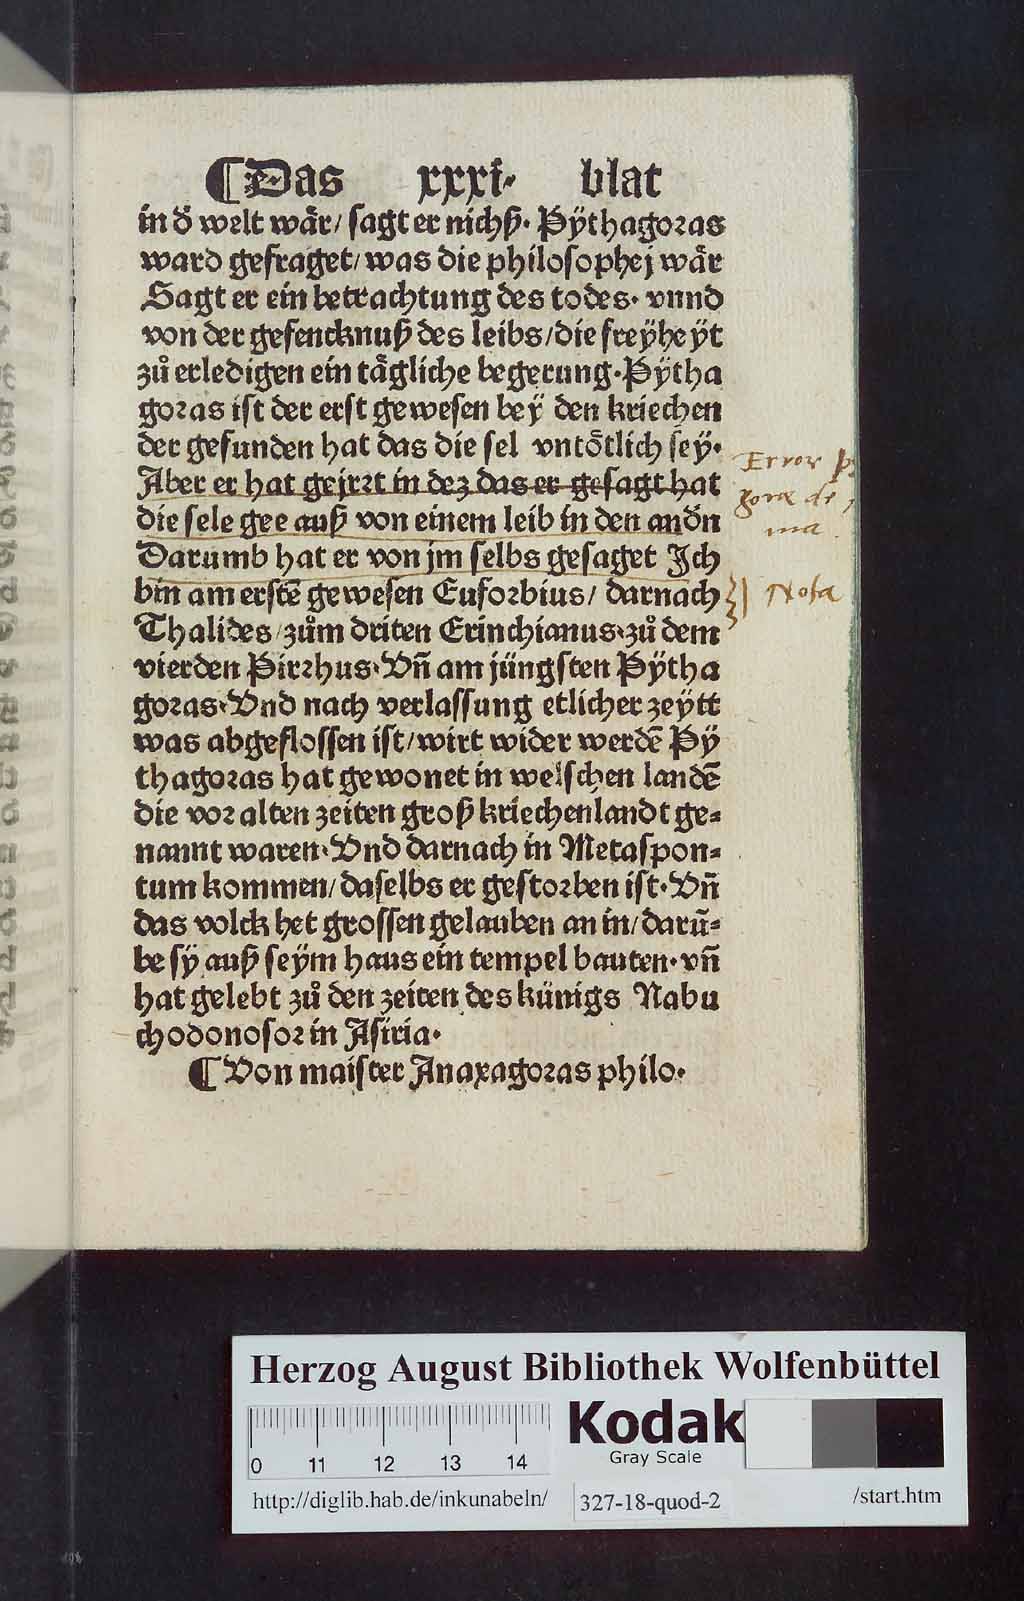 ¶Das xxxi· blat
in d̈ welt wär/ sagt er nichß· Pÿthagoras
ward gefraget/ was die philosophej wär
Sagt er ein betrachtung des todes· vnnd
von der gefencknuß des leibs/ die freÿheÿt
zů erledigen ein tägliche begerung· Pÿtha
goras ist der erst gewesen beÿ den kriechen
der gefunden hat das die sel vntötlich seÿ·
Aber er hat gejrrt in dez das er gesagt hat
die sele gee auß von einem leib in den and̈n
Darumb hat er von jm selbs gesaget Ich
bin am erstē gewesen Euforbius/ darnach
Thalides/ zům driten Erinchianus· zů dem
vierden Pirrhus· Vn̄ am jüngsten Pÿtha
goras· Vnd nach verlassung etlicher zeÿtt
was abgeflossen ist/ wirt wider werdē Pÿ
thagoras hat gewonet in welschen landē
die vor alten zeiten groß kriechenlandt ge⸗
nannt waren· Vnd darnach in Metaspon⸗
tum kommen/ daselbs er gestorben ist· Vn̄
das volck het grossen gelauben an in/ darū⸗
be sÿ auß seÿm haus ein tempel bauten· vn̄
hat gelebt zů den zeiten des künigs Nabu
chodonosor in Asiria·
¶Von maister Anaxagoras philo·
Error
goræ de
ma
Nota
Herzog August Bibliothek Wolfenbüttel
Kodak
Gray Scale
0 11 12 13 14
http://diglib.hab.de/inkunabeln/ 327-18-quod-2 /start.htm